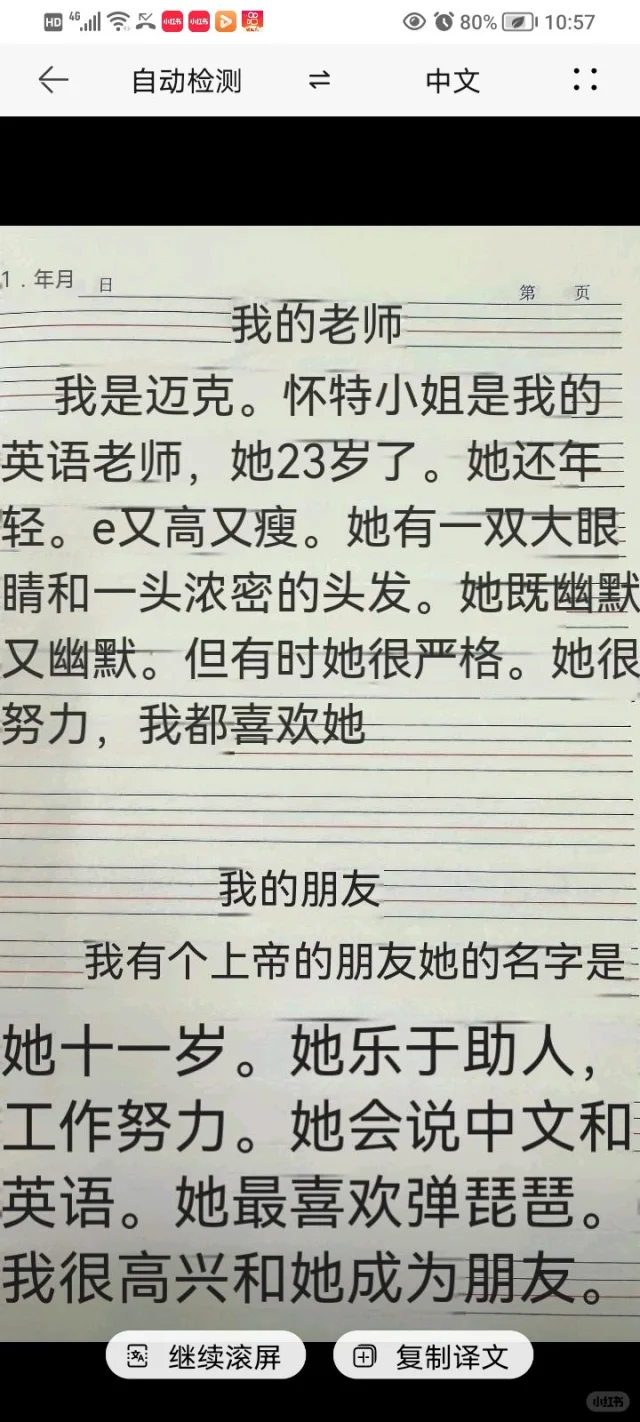 HD 4G 80% 10:57
自动检测 ⇌ 中文
1．年月 日 第 页
我的老师
我是迈克。怀特小姐是我的
英语老师，她23岁了。她还年
轻。e又高又瘦。她有一双大眼
睛和一头浓密的头发。她既幽默
又幽默。但有时她很严格。她很
努力，我都喜欢她
我的朋友
我有个上帝的朋友她的名字是
她十一岁。她乐于助人，
工作努力。她会说中文和
英语。她最喜欢弹琵琶。
我很高兴和她成为朋友。
继续滚屏 复制译文
小红书